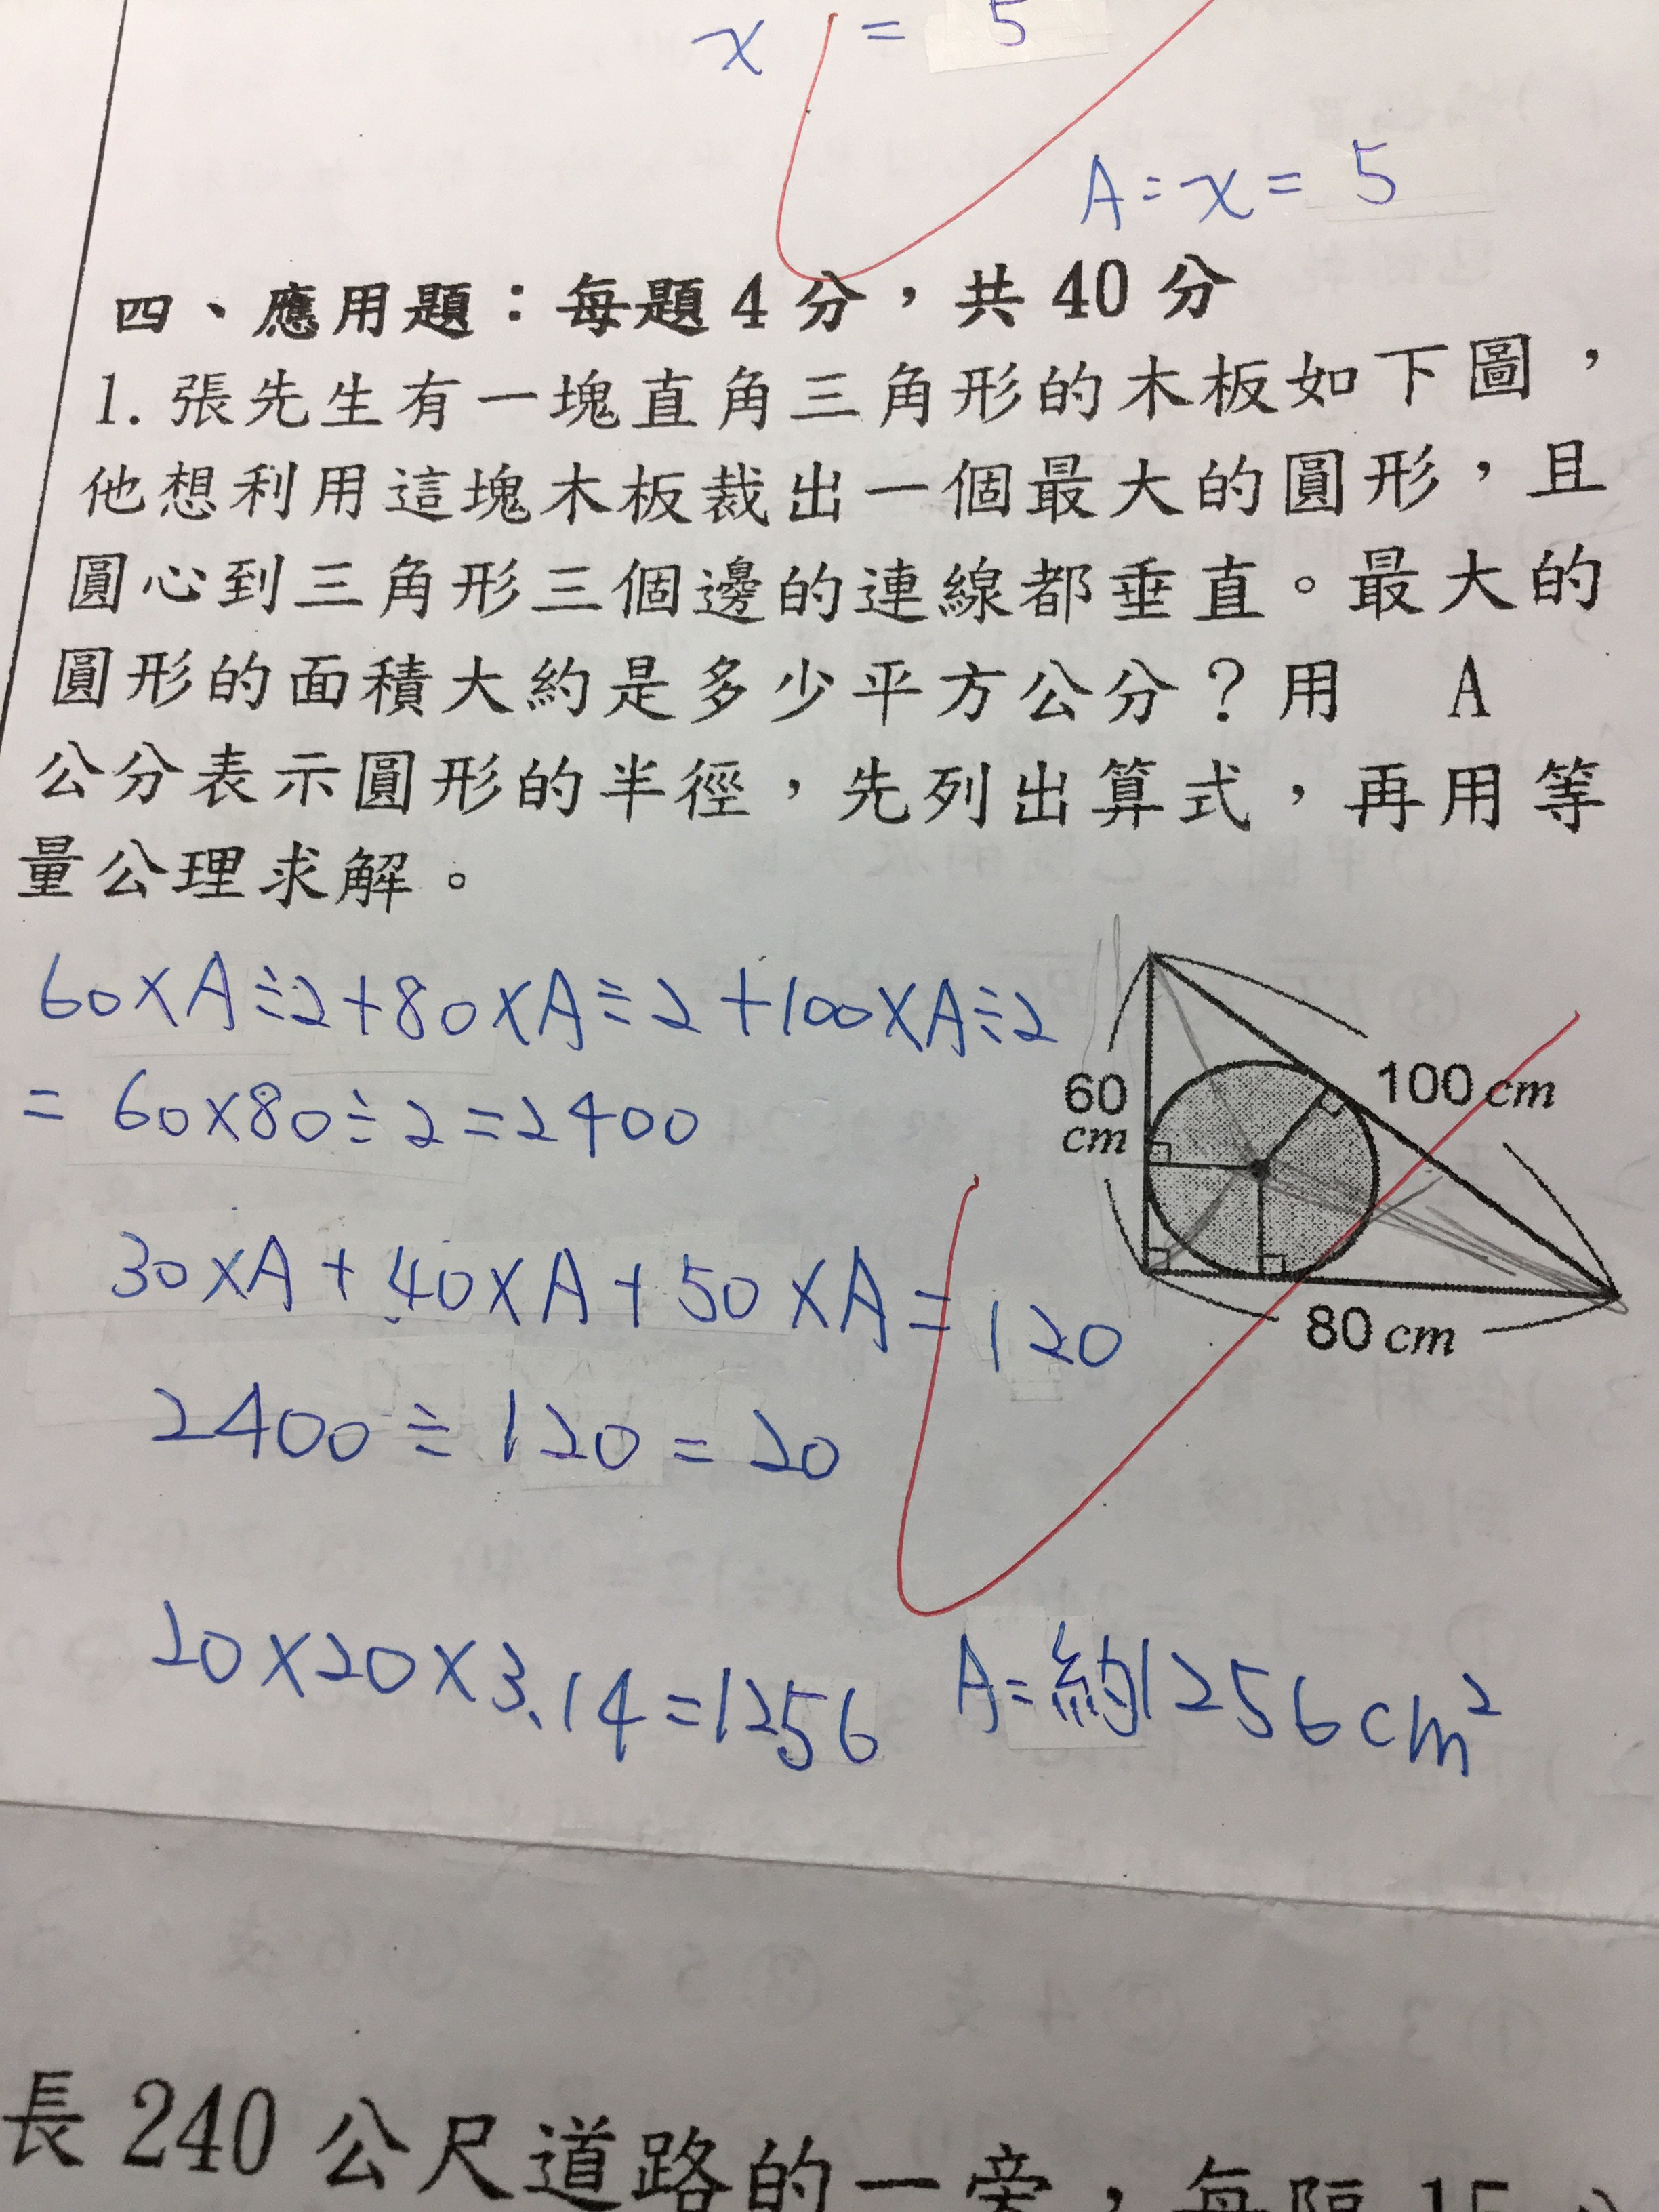 x = 5
A = x = 5
四、應用題：每題4分，共40分
1. 張先生有一塊直角三角形的木板如下圖，
他想利用這塊木板裁出一個最大的圓形，且
圓心到三角形三個邊的連線都垂直。最大的
圓形的面積大約是多少平方公分？用 A
公分表示圓形的半徑，先列出算式，再用等
量公理求解。
60×A÷2+80×A÷2+100×A÷2
= 60×80÷2=2400
60
cm
100 cm
80 cm
30×A+40×A+50×A=120
2400÷120=20
20×20×3.14=1256
A=約1256cm²
長240公尺道路的一旁，每隔15